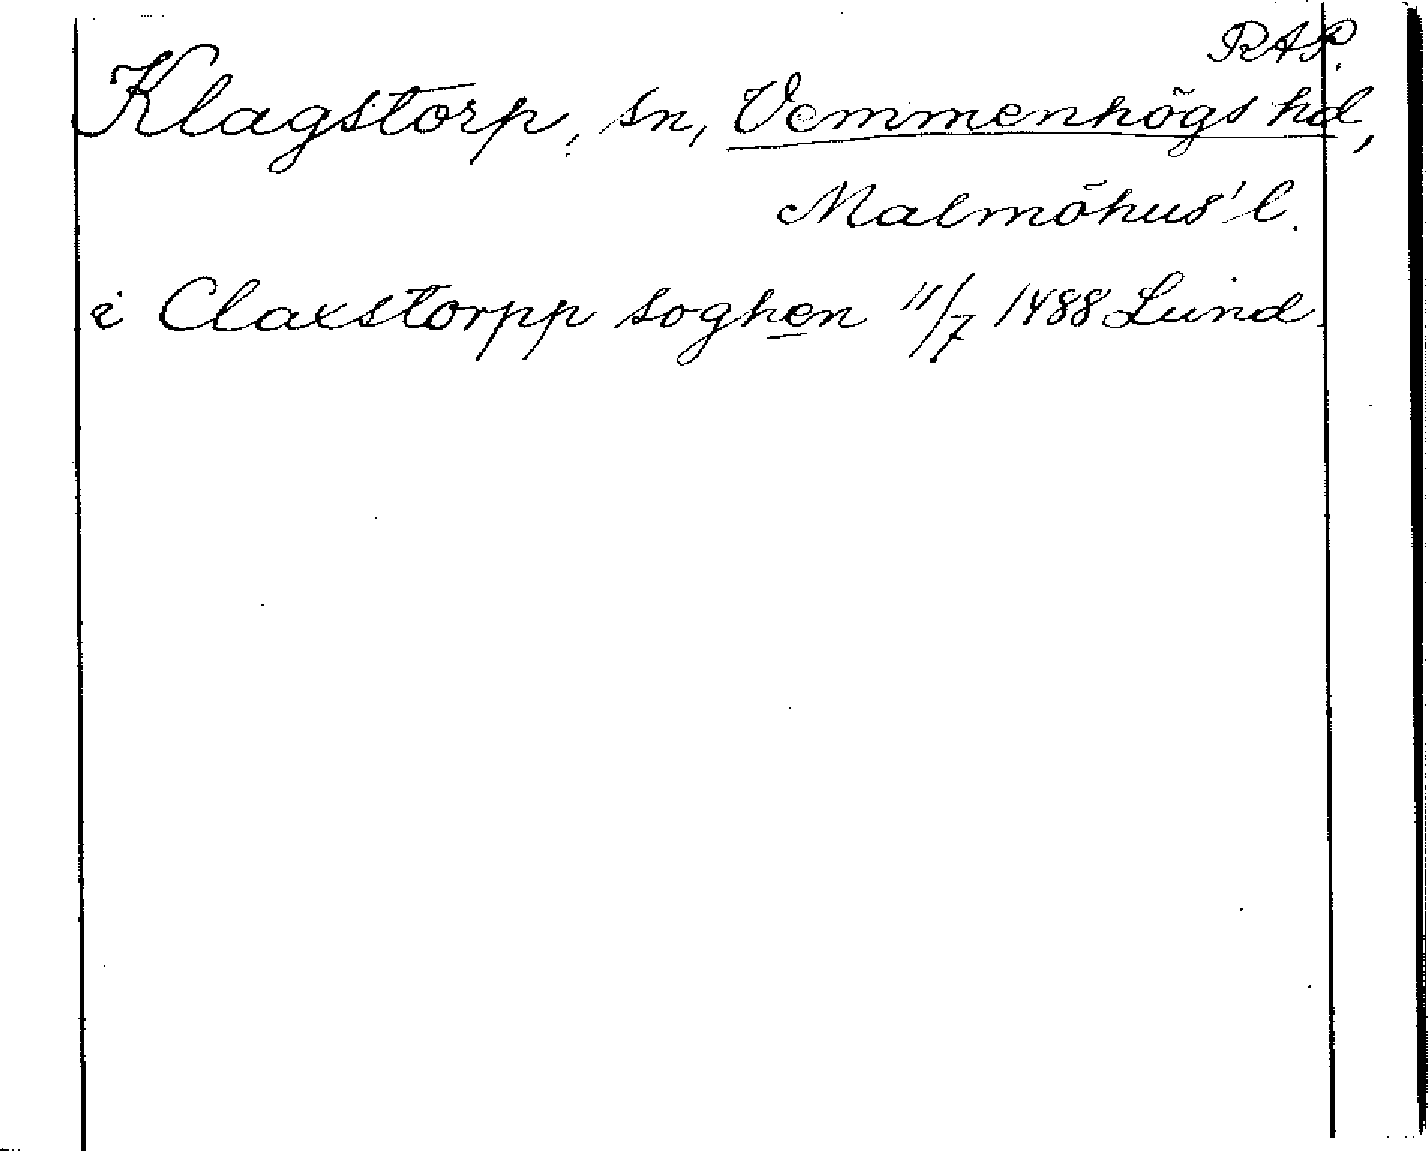 RAP.
Klagstorp, sn, Vemmenhögs hd,
Malmöhus l.
i Claxstorpp soghen 11/7 1488 Lund.